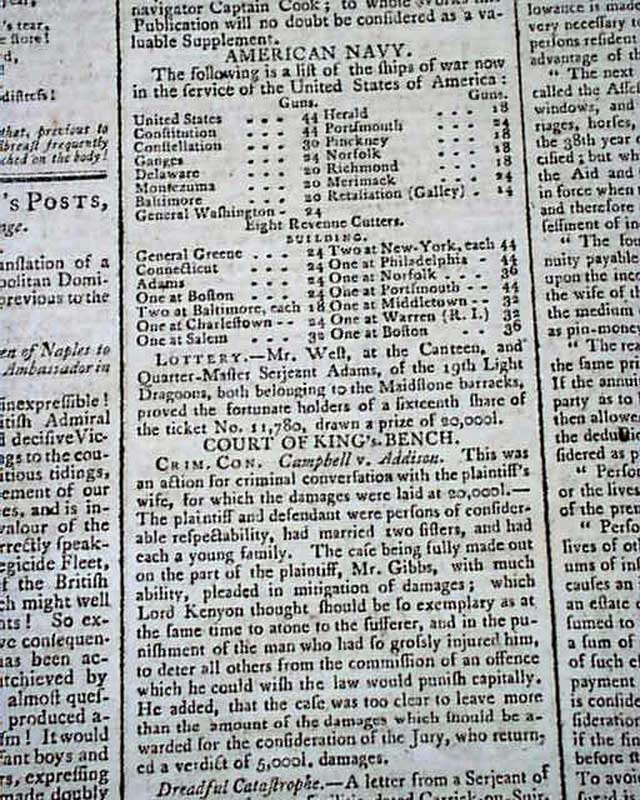 's tear,
e store!
d,
distress!
that, previous to
breast frequently
ched on the body!
's POSTS,
nge.
anslation of a
politan Domi-
previous to the
en of Naples to
Ambassador in
inexpressible!
itish Admiral
d decisive Vic-
ngs to the cou-
itious tidings,
ement of our
es, and is in-
valour of the
rrectly speak-
egicide Fleet,
f the British
ch might well
nts! So ex-
ve consequen-
has been ac-
atchieved by
almost ques-
produced a-
sm! It would
fant boys and
rs, expressing
made doubly
navigator Captain Cook; to whose works this
Publication will no doubt be considered as a va-
luable Supplement.
AMERICAN NAVY.
The following is a list of the ships of war now
in the service of the United States of America:
Guns. Guns.
United States - - - 44 Herald - - - 18
Constitution - - - 44 Portsmouth - - - 24
Constellation - - - 30 Pinckney - - - 18
Ganges - - - 24 Norfolk - - - 18
Delaware - - - 20 Richmond - - - 18
Montezuma - - - 20 Merimack - - - 24
Baltimore - - - 20 Retaliation (Galley) - 14
General Washington - 24
Eight Revenue Cutters.
BUILDING.
General Greene - - - 24 Two at New-York, each 44
Connecticut - - - 24 One at Philadelphia - 44
Adams - - - 24 One at Norfolk - - - 36
One at Boston - - - 24 One at Portsmouth - - 44
Two at Baltimore, each 18 One at Middletown - - 32
One at Charlestown - - 24 One at Warren (R. I.) 32
One at Salem - - - 32 One at Boston - - 36
LOTTERY.—Mr. West, at the Canteen, and
Quarter-Master Serjeant Adams, of the 19th Light
Dragoons, both belonging to the Maidstone barracks,
proved the fortunate holders of a sixteenth share of
the ticket No. 11,780, drawn a prize of 20,000l.
COURT OF KING's-BENCH.
CRIM. CON. Campbell v. Addison. This was
an action for criminal conversation with the plaintiff's
wife, for which the damages were laid at 20,000l.—
The plaintiff and defendant were persons of consider-
able respectability, had married two sisters, and had
each a young family. The case being fully made out
on the part of the plaintiff, Mr. Gibbs, with much
ability, pleaded in mitigation of damages; which
Lord Kenyon thought should be so exemplary as at
the same time to atone to the sufferer, and in the pu-
nishment of the man who had so grossly injured him,
to deter all others from the commission of an offence
which he could wish the law would punish capitally.
He added, that the case was too clear to leave more
than the amount of the damages which should be a-
warded for the consideration of the Jury, who return-
ed a verdict of 5,000l. damages.
Dreadful Catastrophe.—A letter from a Serjeant of
dated Carrick-on-Suir,
lowance is made
very necessary
persons resident
advantage of th
" The next
called the Asses
windows, and
riages, horses,
the 38th year
cified; but wh
the Aid and
in force when
and therefore
sessment of in
" The
nuity payable
upon the inco
the wife of th
the medium
as pin-money
" The rea
the same pri
If the annui
party as to
then allowe
the deduction
sidered as p
" Perso
or the lives
of the prem
" Perso
lives of ot
ums of ins
causes an
an estate
sumed to
a sum of
of such c
payment
is conside
sideration
if the fin
before th
To avoid